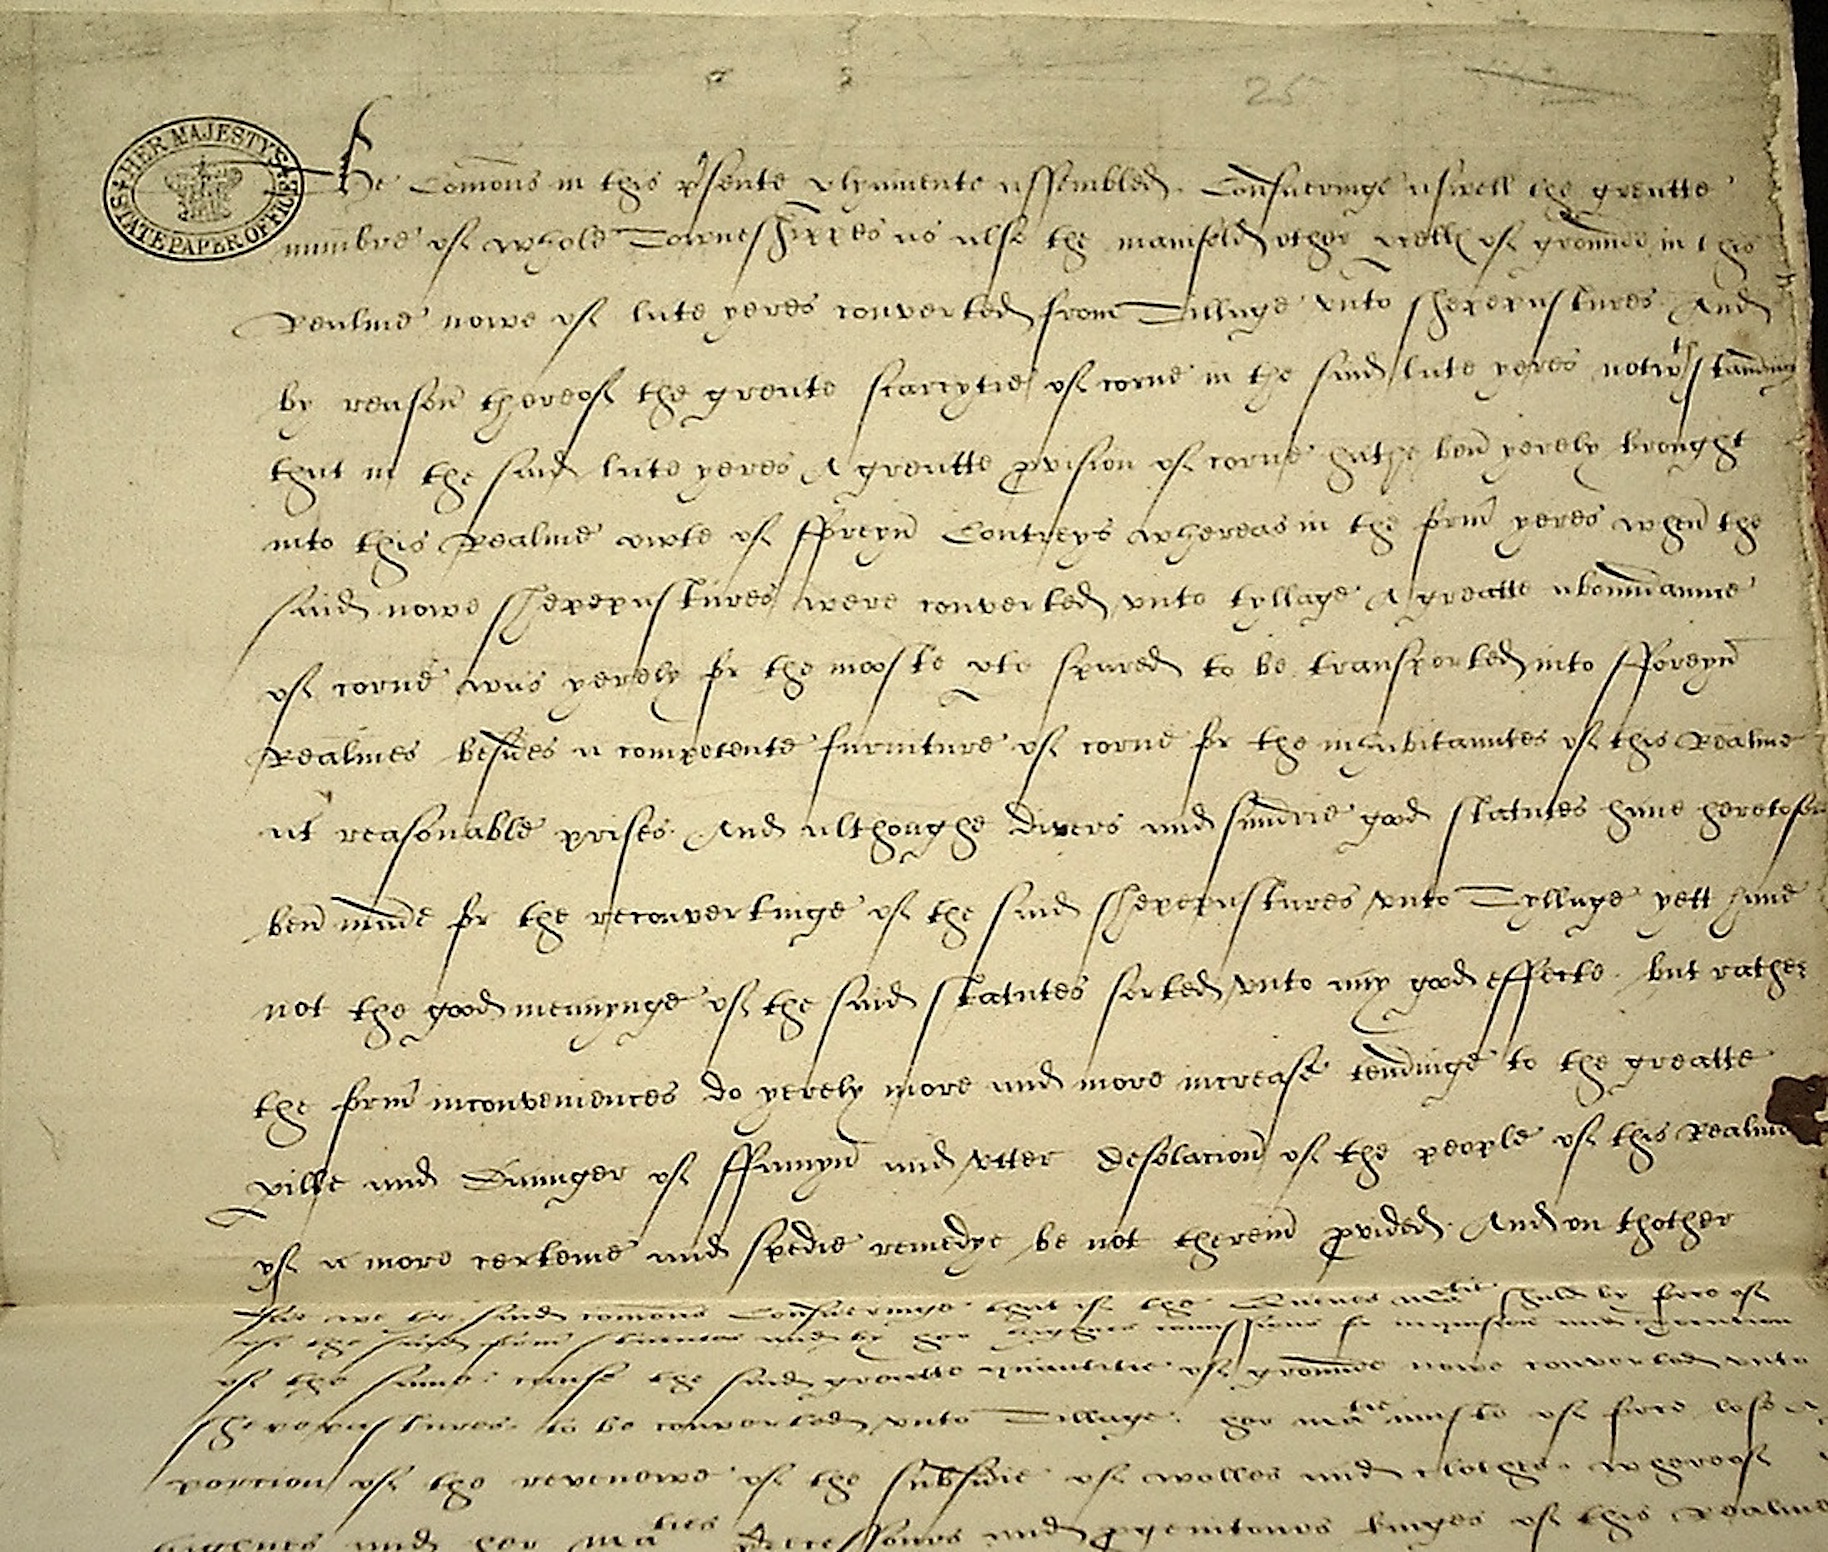 HER MAJESTY'S STATE PAPER OFFICE
25
The Comons in this p'sente plyamente assembled. Consideringe aswell the greatte
numbre of whole Towneshippes as also the manifold other pcells of grounde in this
Realme nowe of late yeres converted from Tillage vnto shepepastures And
by reason thereof the greate scarcytie of corne in the said late yeres notwthstanding
that in the said late yeres A greatte pvision of corne hathe ben yerely brought
into this Realme owte of fforeyn Contreys whereas in the form yeres when the
said nowe shepepastures were converted vnto tyllage A greatte aboundannce
of corne was yerely for the mooste pte spared to be transported into fforeyn
Realmes besides a competente furniture of corne for the inhabitanntes of this Realme
at reasonable prises. And althoughe divers and sundrie good statutes haue heretofor
ben made for the reconvertinge of the said shepepastures vnto Tyllage yett haue
not the good meanynge of the said statutes sorted vnto any good effecte. but rather
the form inconveniences do yerely more and more increase tendinge to the greatte
pille and Daunger of ffamyn and vtter desolacion of the people of this Realme
yf a more certeine and spedie remedye be not therein pvided. And on thother
side we the said comons Consideringe that if the Quenes matie shuld by force of
of the said form statutes and by her highnes comissions for inquisicion and execucion
of the same cause the said greatte quantitie of grounde nowe converted vnto
shepepastures to be converted vnto Tillage. her matie muste of force lose A
portion of the revenewe of the subsidie of wolles and clothes. whereof
highnes and her maties pdecessours and pgenitours kinges of this Realme